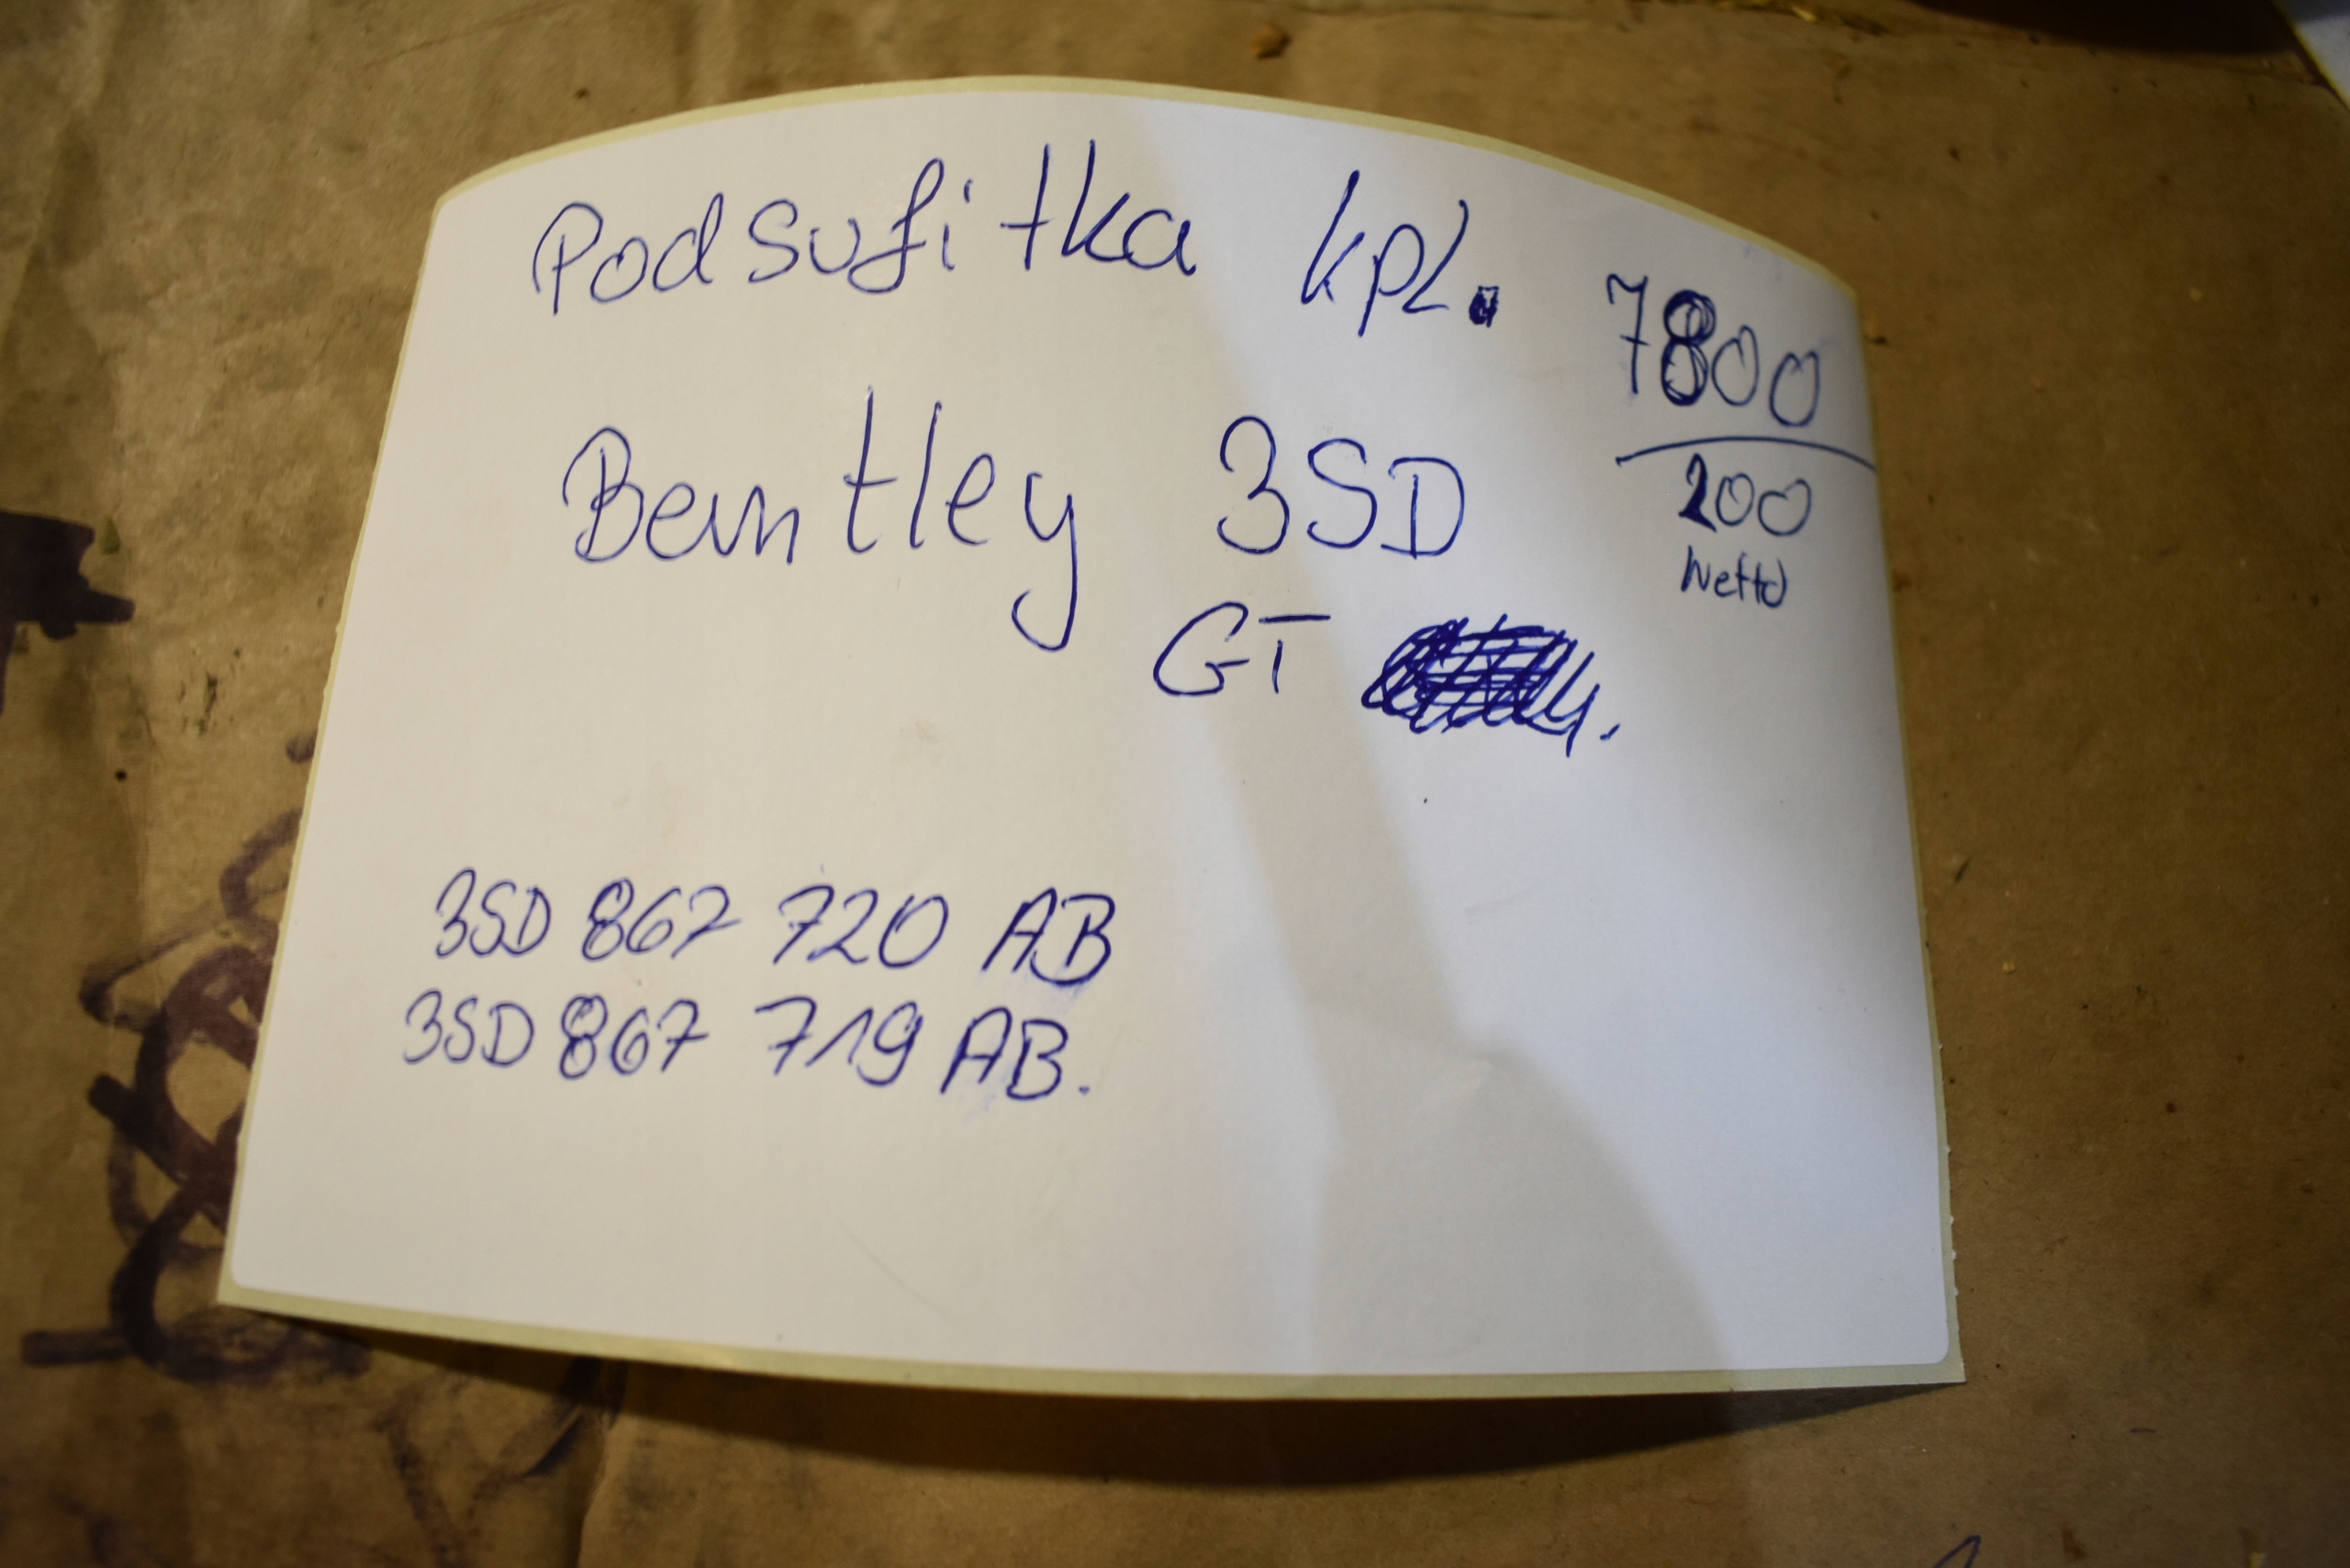 Podsufitka kpl.
7800
Bentley 3SD
200
Netto
GT
3SD 867 720 AB
3SD 867 719 AB.